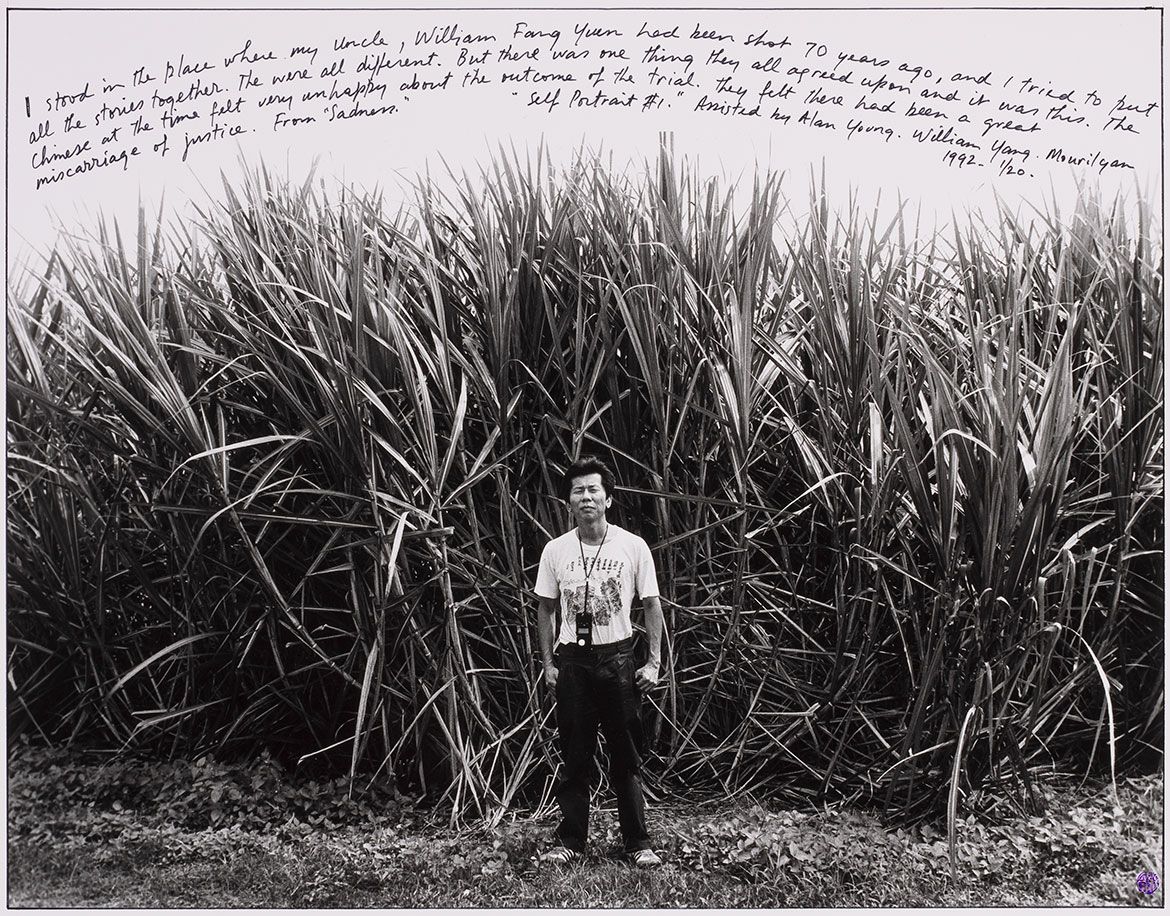 I stood in the place where my Uncle, William Fang Yuen had been shot 70 years ago, and I tried to put
all the stories together. The were all different. But there was one thing they all agreed upon and it was this. The
Chinese at the time felt very unhappy about the outcome of the trial. They felt there had been a great
miscarriage of justice. From "Sadness." "Self Portrait #1." Assisted by Alan Young. William Yang. Mourilyan
1992. 1/20.